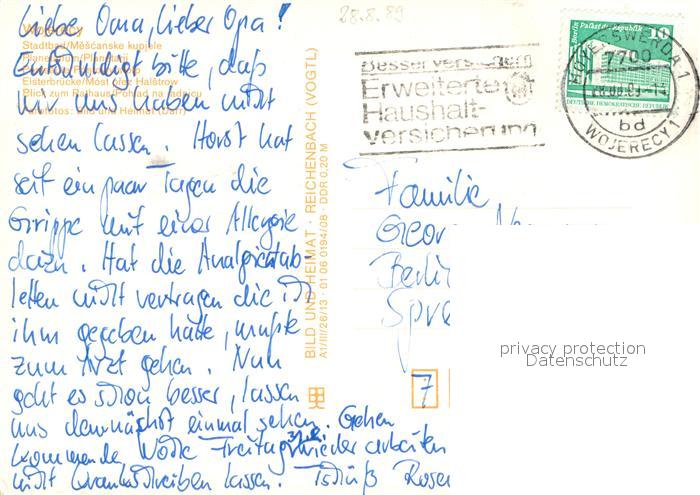 28.8.89
Liebe Oma, lieber Opa!
Entschuldigt bitte, daß
wir uns haben nicht
sehen lassen. Horst hat
seit ein paar Tagen die
Grippe mit einer Allergie
dazu. Hat die Analgintab-
letten nicht vertragen die ich
ihm gegeben hatte, mußte
zum Arzt gehen. Nun
geht es schon besser, lassen
uns demnächst einmal sehen. Gehen
kommende Woche Freitag wieder arbeiten
nicht krankschreiben lassen. Tschüß
Stadtbad/Měšćanske kupjele
BILD UND HEIMAT · REICHENBACH (VOGTL)
A1/III/26/13 · 01 06 0194/08 · DDR 0,20 M
Besser versichern
Erweiterte
Haushalt-
versicherung
HOYERSWERDA 1
7700
bd
WOJERECY 1
Berlin Palast der Republik
10
DEUTSCHE DEMOKRATISCHE REPUBLIK
Familie
Berlin
7
privacy protection
Datenschutz